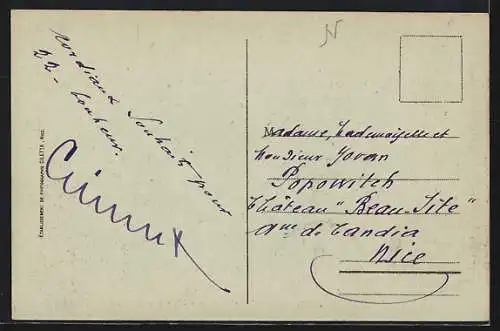 Cordiaux Souhaits pour
22 - bonheur.
ÉTABLISSEMENT DE PHOTOGRAPHIE GILETTA, NICE.
N
Madame, Mademoiselle et
Monsieur Yovan
Popowitch
Château "Beau Site"
de Candia
Nice